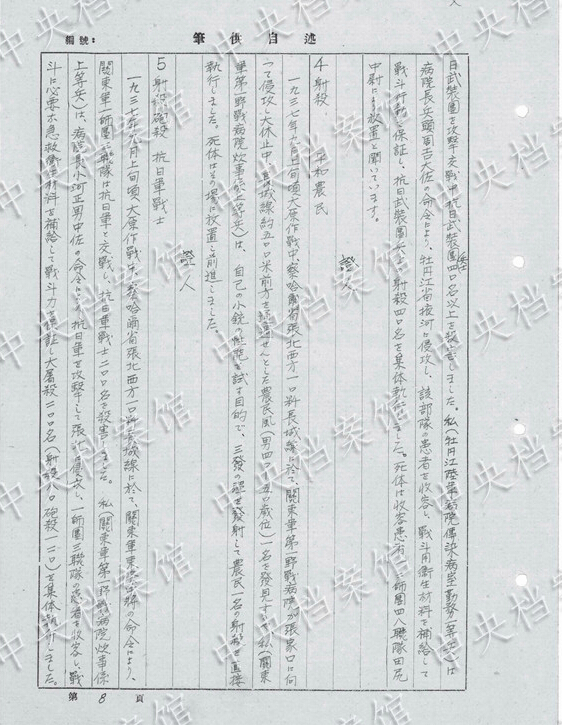 筆供自述
編號：
日武装團を攻撃交戦中抗日武装團四〇名以上を殺害しました。私(牡丹江陸軍病院傳染病室勤務一等兵)は
病院長兵頭周吉大佐の命令により、牡丹江省夜河に侵攻し、該部隊の患者を收容し、戰斗用衛生材料を補給して
戰斗行動を保証し、抗日武装團 の射殺四〇名を集体執行しました。死体は收容患者 師團四八聯隊田尻
中尉により放置と聞いています。
證人
4 射殺、平和農民
一九三七年 月上旬頃大原作戰中、察哈爾省張北西方一〇粁長城線に於て、関東軍第一野戰病院が張家口に向
って侵攻、大休止中、長城線約五〇〇米前方を せんとした農民風の男四〇 五〇歳位)一名を發見するや私(関東
軍第一野戰病院炊事係上等兵)は、自己の小銃の性能を試す目的で、三發の を發射して農民一名の射殺を直接
執行しました。死体はその場に放置し前進しました。
證人
5 射殺砲殺 抗日軍戰士
一九三七年 月上旬頃大原作戰中、察哈爾省張北西方一〇粁長城線に於て、関東軍東條 の命令により、
関東軍一師團三聯隊は抗日軍と交戰し、抗日軍戰士二〇〇名を殺害しました。私(関東軍第一野戰病院炊事係
上等兵)は、病院長小河正男中佐の命令により、抗日軍を攻撃して張北に侵攻し、一師團三聯隊の患者を收容し、戰
斗に必要な急救衛生材料を補給して戰斗力を保証し大屠殺二〇〇名(射殺 〇砲殺一二〇)を集体執行しました。
第 8 頁
中央档案馆